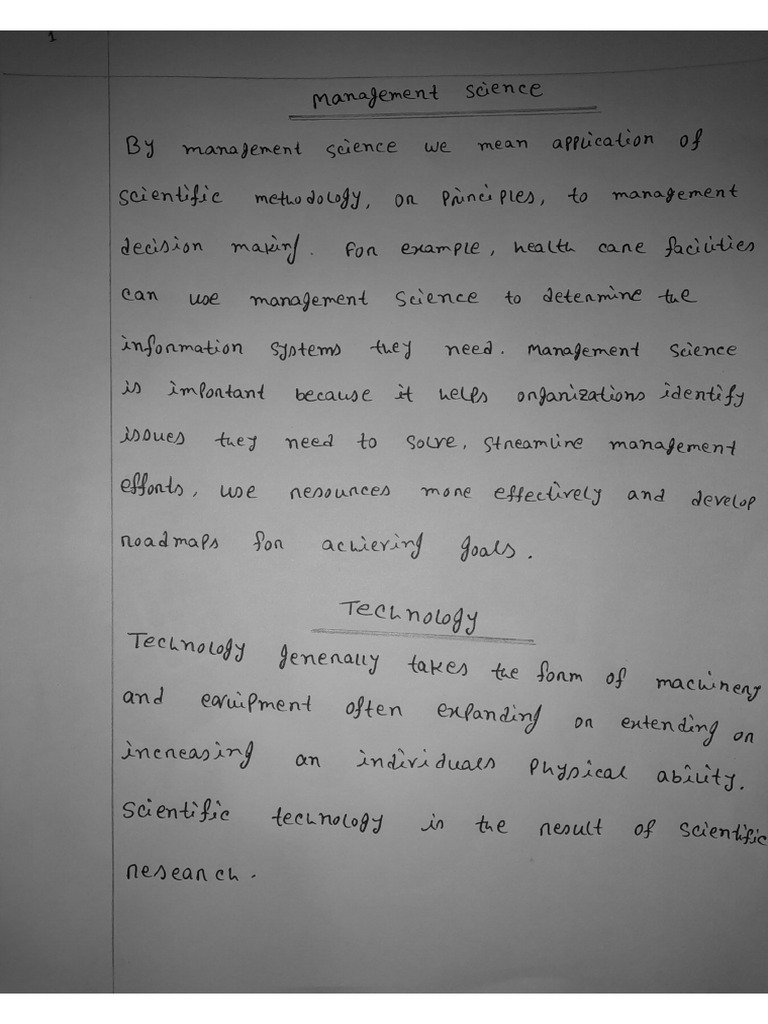 1
Management Science
By management science we mean application of
scientific methodology, or principles, to management
decision making. For example, health care facilities
can use management science to determine the
information systems they need. Management science
is important because it helps organizations identify
issues they need to solve, streamline management
efforts, use resources more effectively and develop
roadmaps for achieving goals.
Technology
Technology generally takes the form of machinery
and equipment often expanding or extending or
increasing an individuals physical ability.
Scientific technology is the result of scientific
research.